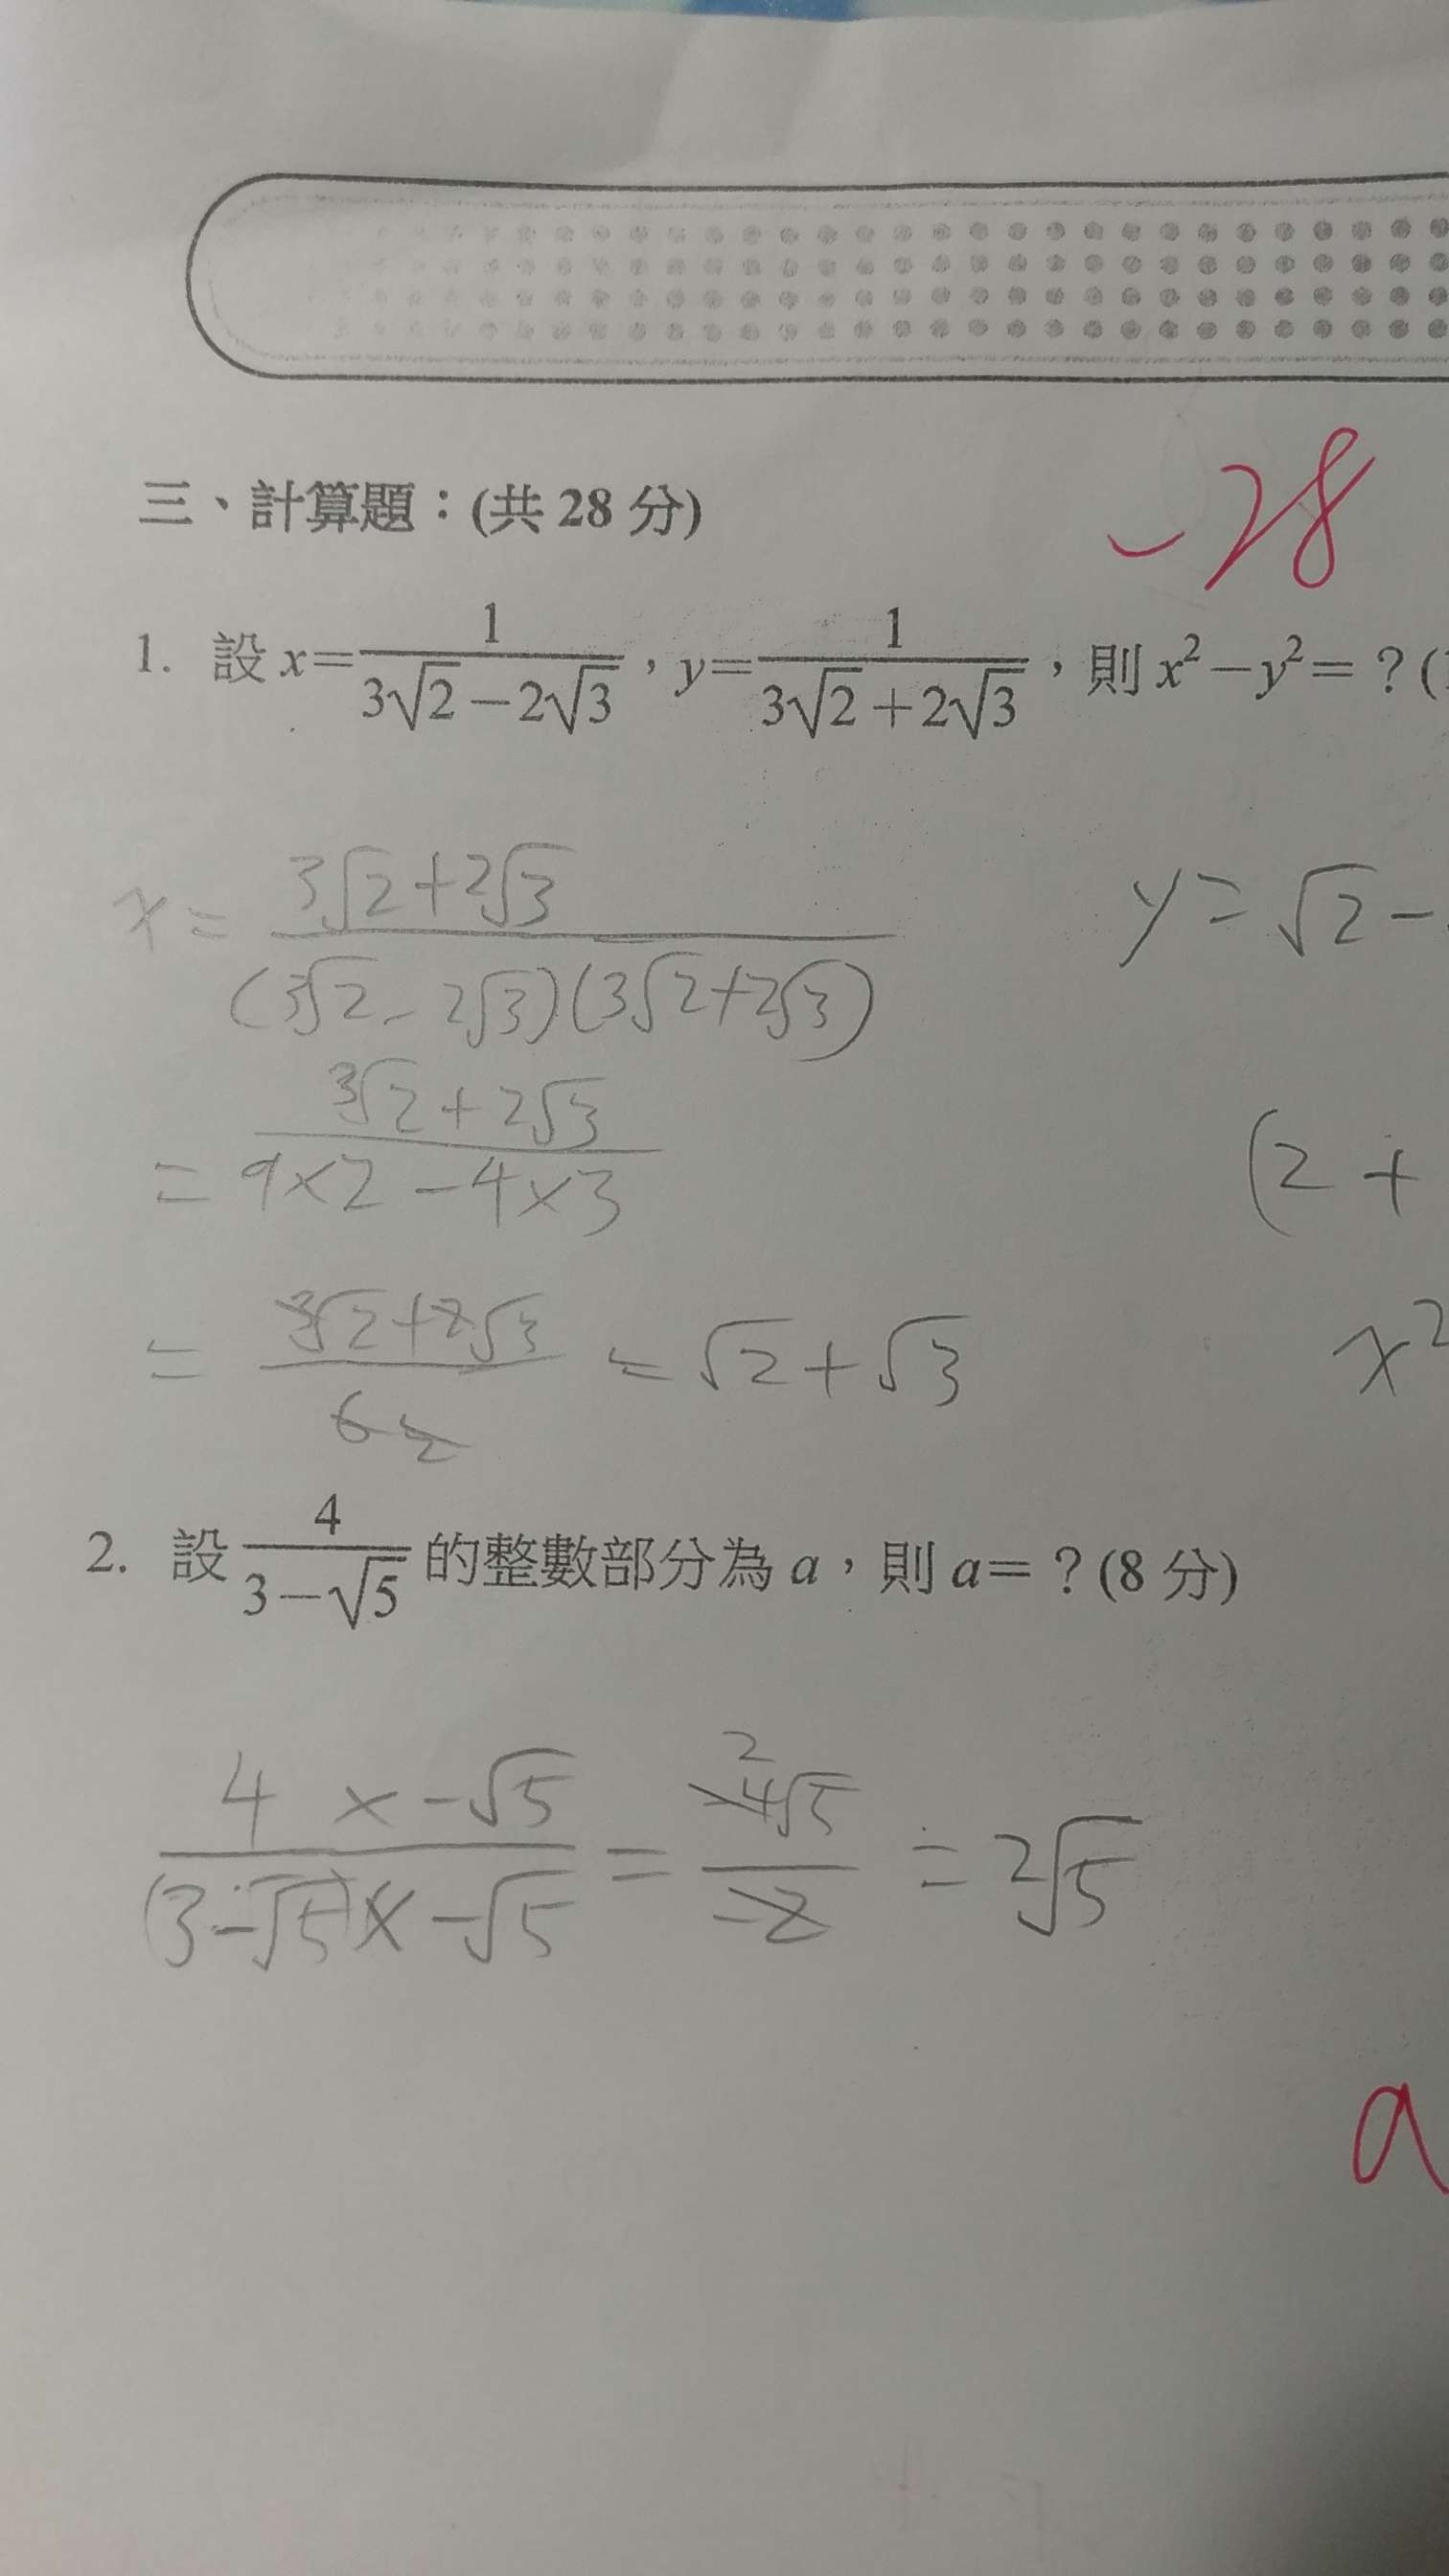 三、計算題：(共 28 分)
-28
1. 設 x=1/(3√2-2√3)，y=1/(3√2+2√3)，則 x²-y²=？(
x = (3√2+2√3)/((3√2-2√3)(3√2+2√3))
y = √2 -
= (3√2+2√3)/(9×2-4×3)
(2 +
= (3√2+2√3)/6 = √2+√3
x²
2. 設 4/(3-√5) 的整數部分為 a，則 a=？(8 分)
(4 × -√5)/((3-√5)× -√5) = -4√5/-2 = 2√5
a